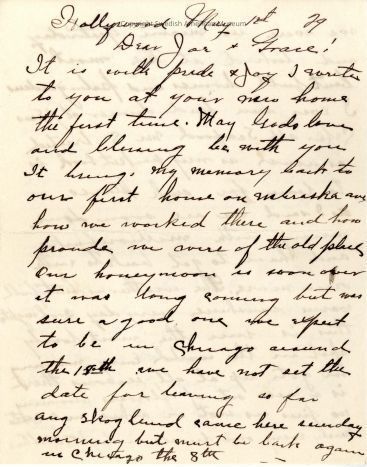 Hollywood Mar 1st 29
Swedish American Museum
Dear Joe & Grace!
It is with pride & Joy I write
to you at your new home
the first time. May Gods love
and blessing be with you
It brings my memory back to
our first home on nebraska ave
how we worked there and how
proude we were of the old place
Our honeymoon is soon over
it was long coming but was
sure a good one we expect
to be in Chicago around
the 15th we have not set the
date for leaving so far
aug Skoglund came here sunday
morning but must be back again
in Chicago the 8th